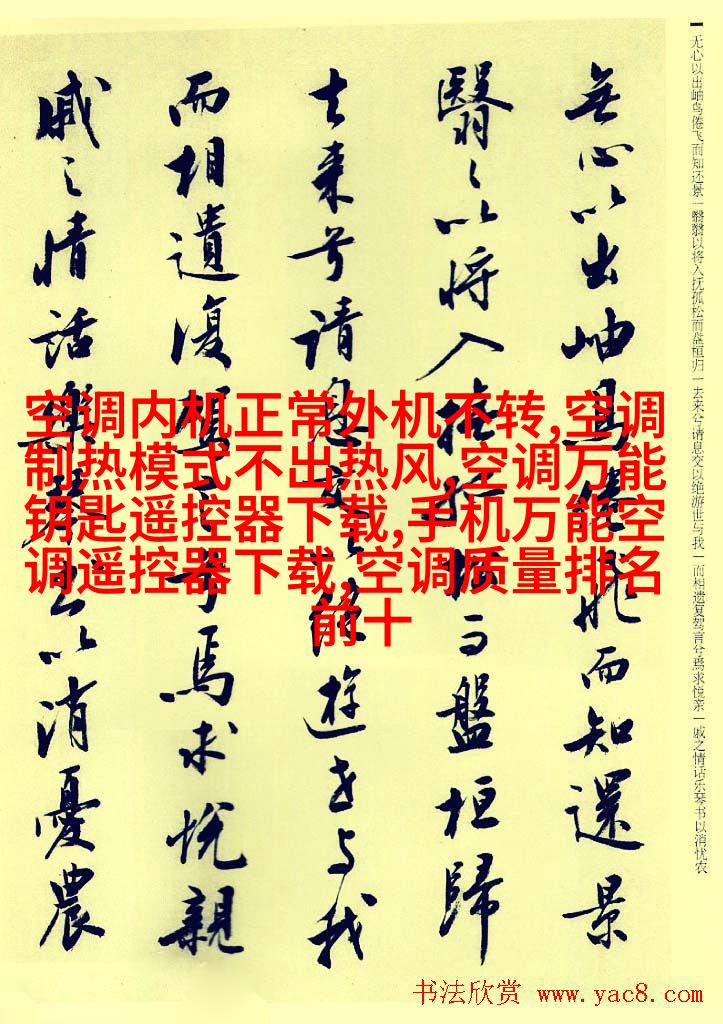 无心以出岫鸟倦飞而知还景|翳翳以将入抚孤松而盘桓归|去来兮请息交以绝游世与我|而相遗复驾言兮焉求悦亲|戚之情话乐琴书以消忧农
無心以出岫鳥倦飛而知還景
翳々以將入撫孤松而盤桓歸
去来兮請息交以絶遊世与我
而相遺復駕言兮焉求悅親
戚之情話樂琴書以消憂農
空调内机正常外机不转,空调
制热模式不出热风,空调万能
钥匙遥控器下载,手机万能空
调遥控器下载,空调质量排名
前十
书法欣赏 www.yac8.com